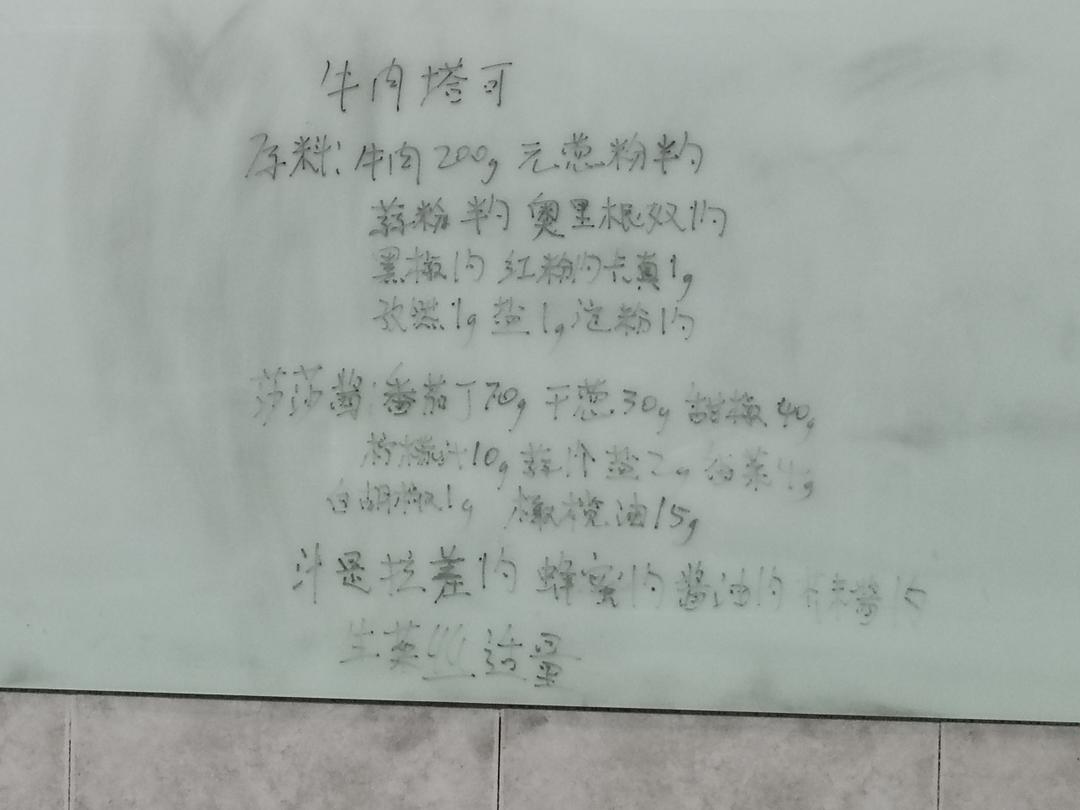 牛肉塔可
原料:牛肉200g 元葱粉半勺
蒜粉半勺 奥里根奴1勺
黑椒1勺 红粉1勺 卡真1g
孜然1g 盐1g 淀粉1勺
莎莎酱:番茄丁70g 干葱30g 甜椒40g
柠檬汁10g 蒜1个 盐2g 香菜4g
白胡椒1g 橄榄油15g
汁是拉差1勺 蜂蜜1勺 酱油1勺
生菜丝适量